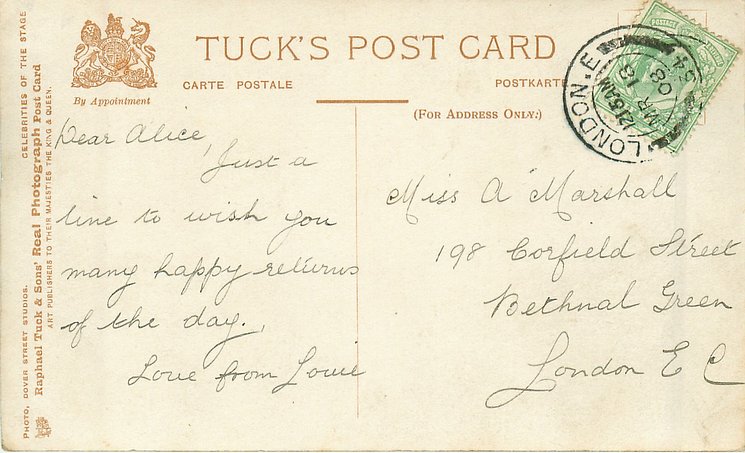 TUCK'S POST CARD
CARTE POSTALE
POSTKARTE
By Appointment
(FOR ADDRESS ONLY.)
CELEBRITIES OF THE STAGE
Raphael Tuck & Sons' Real Photograph Post Card
ART PUBLISHERS TO THEIR MAJESTIES THE KING & QUEEN.
PHOTO, DOVER STREET STUDIOS.
POSTAGE
LONDON.E
12.15AM
MR 18
08
54
Dear Alice,
Just a
line to wish you
many happy returns
of the day.,
Love from Louie
Miss A Marshall
198 Corfield Street
Bethnal Green
London E C